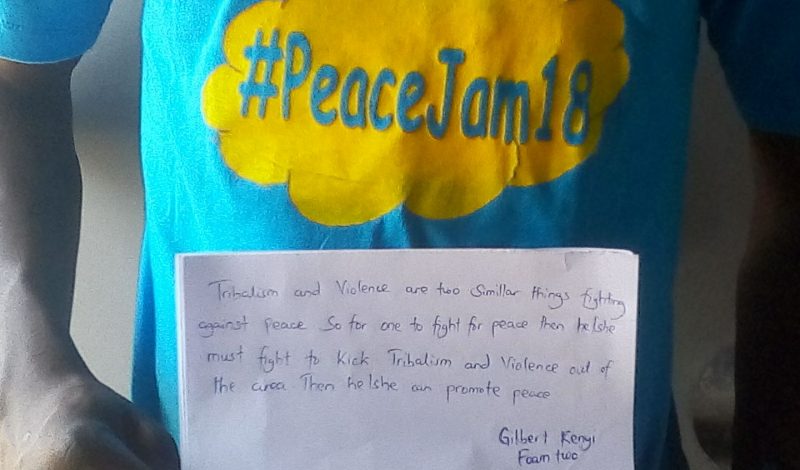 #PeaceJam18
Tribalism and Violence are two Simillar things fighting
against peace So for one to fight for peace then he/she
must fight to kick Tribalism and Violence out of
the area Then he/she can promote peace
Gilbert Kenyi
Foam two